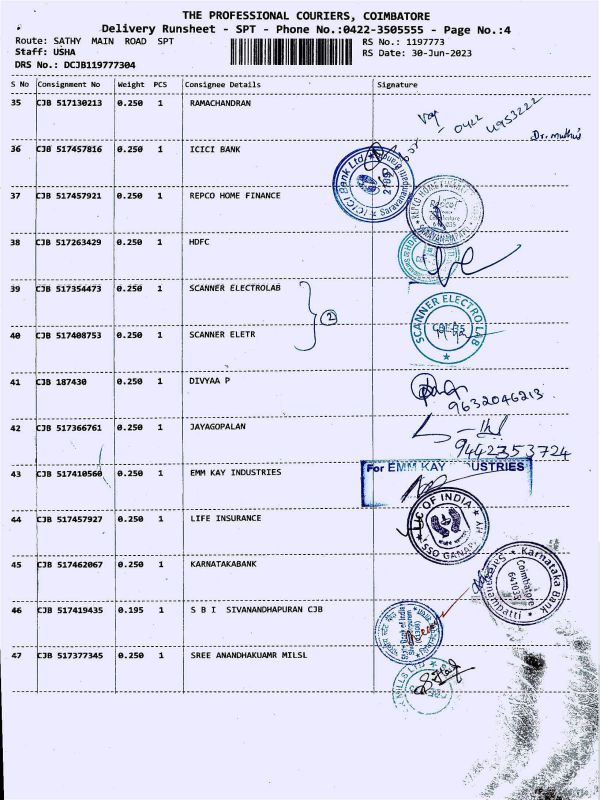 THE PROFESSIONAL COURIERS, COIMBATORE
Delivery Runsheet - SPT - Phone No.:0422-3505555 - Page No.:4
Route: SATHY MAIN ROAD SPT RS No.: 1197773
Staff: USHA RS Date: 30-Jun-2023
DRS No.: DCJB119777304
S No Consignment No Weight PCS Consignee Details Signature
35 CJB 517130213 0.250 1 RAMACHANDRAN
0422 4953222
Dr. muthu
36 CJB 517457816 0.250 1 ICICI BANK
ICICI Bank Ltd
37 CJB 517457921 0.250 1 REPCO HOME FINANCE
REPCO HOME FINANCE
SARAVANAMPATTI
38 CJB 517263429 0.250 1 HDFC
39 CJB 517354473 0.250 1 SCANNER ELECTROLAB
2
SCANNER ELECTRO LAB
40 CJB 517408753 0.250 1 SCANNER ELETR
41 CJB 187430 0.250 1 DIVYAA P
9632046213
42 CJB 517366761 0.250 1 JAYAGOPALAN
9442353724
43 CJB 517410560 0.250 1 EMM KAY INDUSTRIES
For EMM KAY USTRIES
44 CJB 517457927 0.250 1 LIFE INSURANCE
LIC OF INDIA
SSO GANAP
45 CJB 517462067 0.250 1 KARNATAKABANK
Karnataka Bank
Coimbatore
46 CJB 519419435 0.195 1 S B I SIVANANDHAPURAN CJB
State Bank of India
47 CJB 517377345 0.250 1 SREE ANANDHAKUAMR MILSL
MILLS LTD
CBE